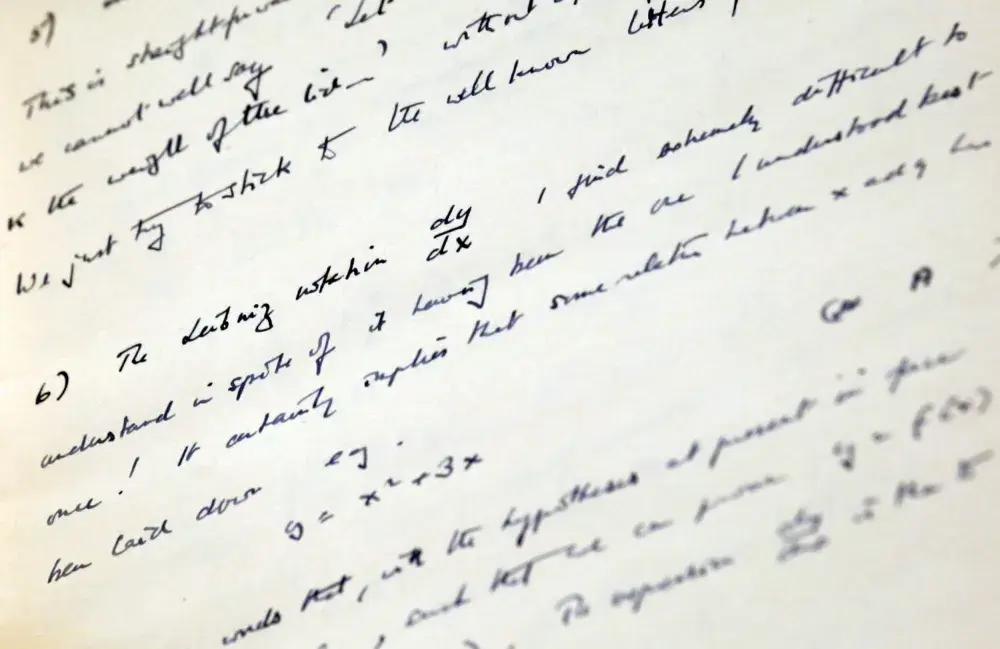 5)
This is straightforward 'Let
we cannot well say
is the weight of the lid –' without
We just try to stick to the well known letters
6) The Leibniz notation dy/dx I find extremely difficult to
understand in spite of it having been the one I understood best
once! It certainly implies that some relation between x and y has
been laid down eg.
y = x² + 3x
words that, with the hypotheses at present in force
, such that we can prove y = f(x)
The expression dy/dx in the